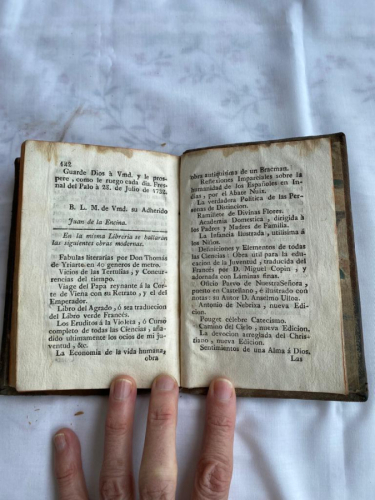 122
Guarde Dios à Vmd. y le prospere, como le ruego cada dia. Fres-
nal del Palo à 28. de Julio de 1782.
B. L. M. de Vmd. su Adherido
Juan de la Encina.
En la misma Librería se hallarán
las siguientes obras modernas.
Fabulas literarias por Don Thomas
de Yriarte en 40 generos de metro.
Vicios de las Tertulias, y Concur-
rencias del tiempo.
Viage del Papa reynante á la Cor-
te de Viena con su Retrato, y el del
Emperador.
Libro del Agrado, ó sea traducion
del Libro verde Francés.
Los Eruditos á la Violeta, ó Curso
completo de todas las Ciencias, aña-
dido ultimamente los ocios de mi ju-
ventud, &c.
La Economía de la vida humana,
obra
obra antiquisima de un Bracman.
Reflexiones Imparciales sobre la
humanidad de los Españoles en In-
dias, por el Abate Nuix.
La verdadera Politica de las Per-
sonas de Distincion.
Ramillete de Divinas Flores.
Academia Domestica, dirigida à
los Padres y Madres de Familia.
La Infancia Ilustrada, utilisima á
los Niños.
Definiciones y Elementos de todas
las Ciencias: Obra util para la edu-
cacion de la Juventud, traducida del
Francés por D. Miguel Copin, y
adornada con Láminas finas.
Oficio Parvo de Nuestra Señora,
puesto en Castellano, è ilustrado con
notas: su Autor D. Anselmo Ulloa.
Antonio de Nebrixa, nueva Edi-
cion.
Pouget célebre Catecismo.
Camino del Cielo, nueva Edicion.
La devocion arreglada del Chris-
tiano, nueva Edicion.
Sentimientos de una Alma á Dios.
Las